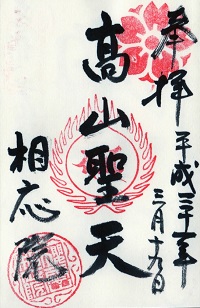 奉拝 平成三十一年
三月十九日
高山聖天
相応院